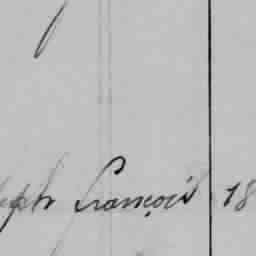 eph François 18